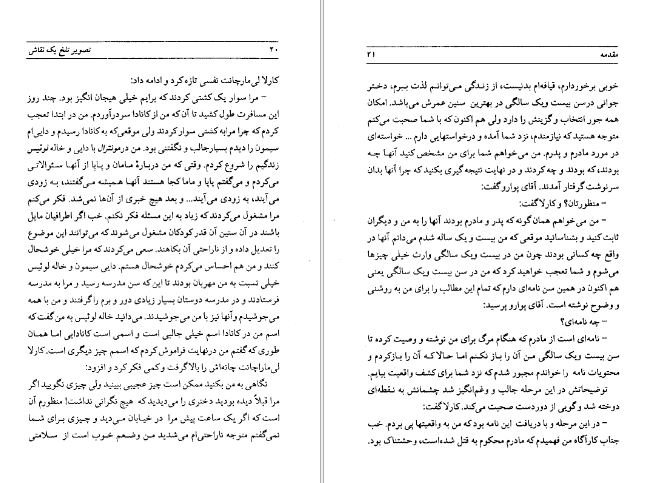 ۲۰ تصویر تلخ یک نقاش
کارلا لی‌مارچانت نفسی تازه کرد و ادامه داد:
– مرا سوار یک کشتی کردند که برایم خیلی هیجان انگیز بود. چند روز
این مسافرت طول کشید تا آن که من از کانادا سردرآوردم. من در ابتدا تعجب
کردم که چرا مرا به کشتی سوار کردند ولی موقعی که به کانادا رسیدم و دایی‌ام
سیمون را دیدم بسیار جالب و نگفتنی بود. من در مونترال با دایی و خاله لوئیس
زندگیم را شروع کردم. وقتی که من دربارهٔ مامان و پاپا از آنها سئوالاتی
می‌کردم و می‌گفتم پاپا و ماما کجا هستند آنها همیشه می‌گفتند، به زودی
می‌آیند، به زودی می‌آیند... و بعد هیچ خبری از آن‌ها نمی‌شد. فکر می‌کنم
مرا مشغول می‌کردند که زیاد به این مسئله فکر نکنم. خب اگر اطرافیان مایل
باشند در آن سنین آن قدر کودکان مشغول می‌شوند که می‌توانند این موضوع
را تعدیل داده و از ناراحتی آن بکاهند. سعی می‌کردند که مرا خیلی خوشحال
کنند و من هم احساس می‌کردم خوشحال هستم. دایی سیمون و خاله لوئیس
خیلی نسبت به من مهربان بودند تا این که سن مدرسه رسید و مرا به مدرسه
فرستادند و در مدرسه دوستان بسیار زیادی دور و برم را گرفتند و من با همه
می‌جوشیدم و آنها نیز با من می‌جوشیدند. می‌دانید خاله لوئیس به من گفت که
اسم من در کانادا اسم خیلی جالبی است و اسمی کانادایی اما همان
طوری که گفتم من درنهایت فراموش کردم که اسمم چیز دیگری است. کارلا
لی‌مارچانت چانه‌اش را بالا گرفت و کمی فکر کرد و افزود:
نگاهی به من بکنید ممکن است چیز عجیبی ببینید ولی چیزی نگویید اگر
مرا قبلاً دیده بودید دختری را می‌دیدید که هیچ نگرانی نداشت! منظورم آن
است که اگر یک ساعت پیش مرا در خیابان می‌دید و چیزی برای شما
نمی‌گفتم متوجه ناراحتی‌ام می‌شدید من وضعم خوب است از سلامتی
مقدمه ۲۱
خوبی برخوردارم، قیافه‌ام بدنیست، از زندگی می‌توانم لذت ببرم، دختر
جوانی درسن بیست ویک سالگی در بهترین سنین عمرش می‌باشد. امکان
همه جور انتخاب و گزینش را دارد ولی هم اکنون که با شما صحبت می‌کنم
متوجه هستید که نیازمندم، نزد شما آمده و درخواستهایی دارم ... خواسته‌ای
در مورد مادرم و پدرم. من می‌خواهم شما برای من مشخص کنید آنها چه
بودند، که بودند و چه کردند و در نهایت نتیجه گیری بکنید که چرا آنها بدان
سرنوشت گرفتار آمدند. آقای پوارو گفت:
– منظورتان؟ و کارلا گفت:
– من می‌خواهم همان گونه که پدر و مادرم بودند آنها را به من و دیگران
ثابت کنید و بشناسانید موقعی که من بیست و یک ساله شدم می‌دانم آنها در
واقع چه کسانی بودند چون من در بیست ویک سالگی وارث خیلی چیزها
می‌شوم و شما تعجب خواهید کرد که من در سن بیست ویک سالگی یعنی
هم اکنون در همین سن نامه‌ای دارم که تمام این مطالب را برای من به روشنی
و وضوح نوشته است. آقای پوارو پرسید:
– چه نامه‌ای؟
– نامه‌ای است از مادرم که هنگام مرگ برای من نوشته و وصیت کرده تا
سن بیست ویک سالگی من آن را باز نکنم اما حالا که آن را باز کردم و
محتویات نامه را خواندم مجبور شدم که نزد شما برای کشف واقعیت بیایم.
توضیحاتش در این مرحله جالب و غم‌انگیز شد چشمانش به نقطه‌ای
دوخته شد و گویی از دوردست صحبت می‌کند. کارلا گفت:
– در این مرحله و با دریافت این نامه بود که من به واقعیتها پی بردم. خب
جناب کارآگاه من فهمیدم که مادرم محکوم به قتل شده‌است، وحشتناک بود.